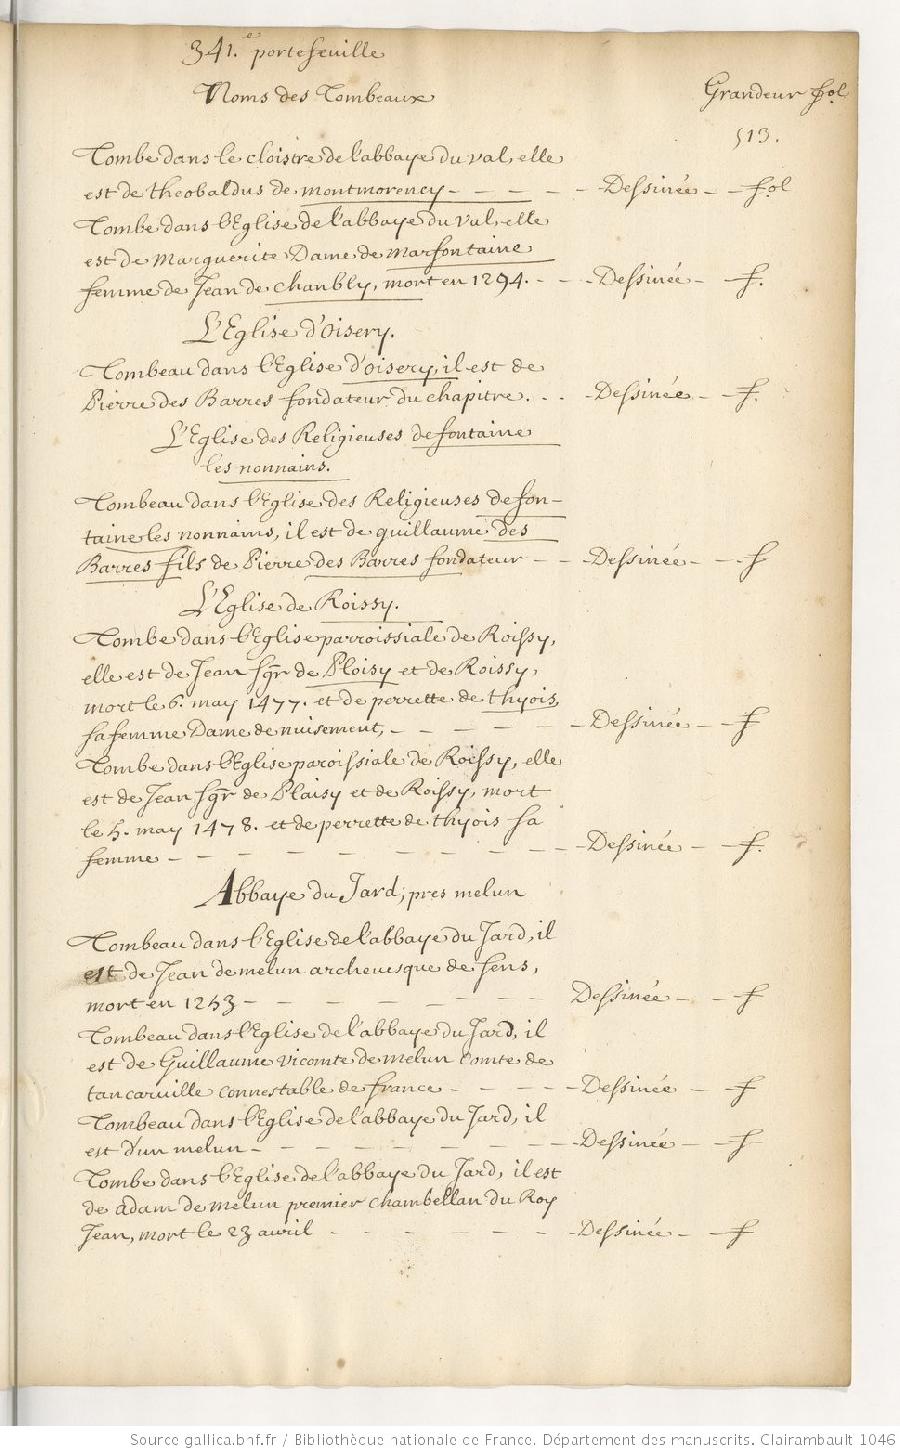 341.e portefeuille
Noms des Tombeaux
Grandeur fol
513.
Tombe dans le cloistre de l'abbaye du val, elle
est de theobaldus de montmorency - - - - - Dessinée - - fol
Tombe dans l'Eglise de l'abbaye du val, elle
est de Marguerite Dame de marfontaine
femme de Jean de chanbly, mort en 1294. - - - Dessinée - - f.
L'Eglise d'Oisery.
Tombeau dans l'Eglise d'oisery, il est de
Pierre des Barres fondateur du chapitre. . . Dessinée - - f.
L'Eglise des Religieuses de fontaine
les nonnains.
Tombeau dans l'Eglise des Religieuses de fon-
taine les nonnains, il est de guillaume des
Barres fils de Pierre des Barres fondateur - - - Dessinée - - f
L'Eglise de Roissy.
Tombe dans l'Eglise parroissiale de Roissy,
elle est de Jean sgr de Ploisy et de Roissy,
mort le 6. may 1477. et de perrette de thyois
sa femme Dame de nuisement, - - - - - - Dessinée - - f
Tombe dans l'Eglise paroissiale de Roissy, elle
est de Jean sgr de Plaisy et de Roissy, mort
le 5. may 1478. et de perrette de thyois sa
femme - - - - - - - - - Dessinée - - f.
Abbaye du Jard, pres melun
Tombeau dans l'Eglise de l'abbaye du Jard, il
est de Jean de melun archevesque de sens,
mort en 1253 - - - - - - Dessinée - - f
Tombeau dans l'Eglise de l'abbaye du Jard, il
est de Guillaume vicomte de melun Comte de
tancarville connestable de france - - - - - Dessinée - - f
Tombeau dans l'Eglise de l'abbaye du Jard, il
est d'un melun - - - - - - - - - Dessinée - - f
Tombe dans l'Eglise de l'abbaye du Jard, il est
de adam de melun premier chambellan du Roy
Jean, mort le 23 avril - - - - - - Dessinée - - f
Source gallica.bnf.fr / Bibliothèque nationale de France. Département des manuscrits. Clairambault 1046